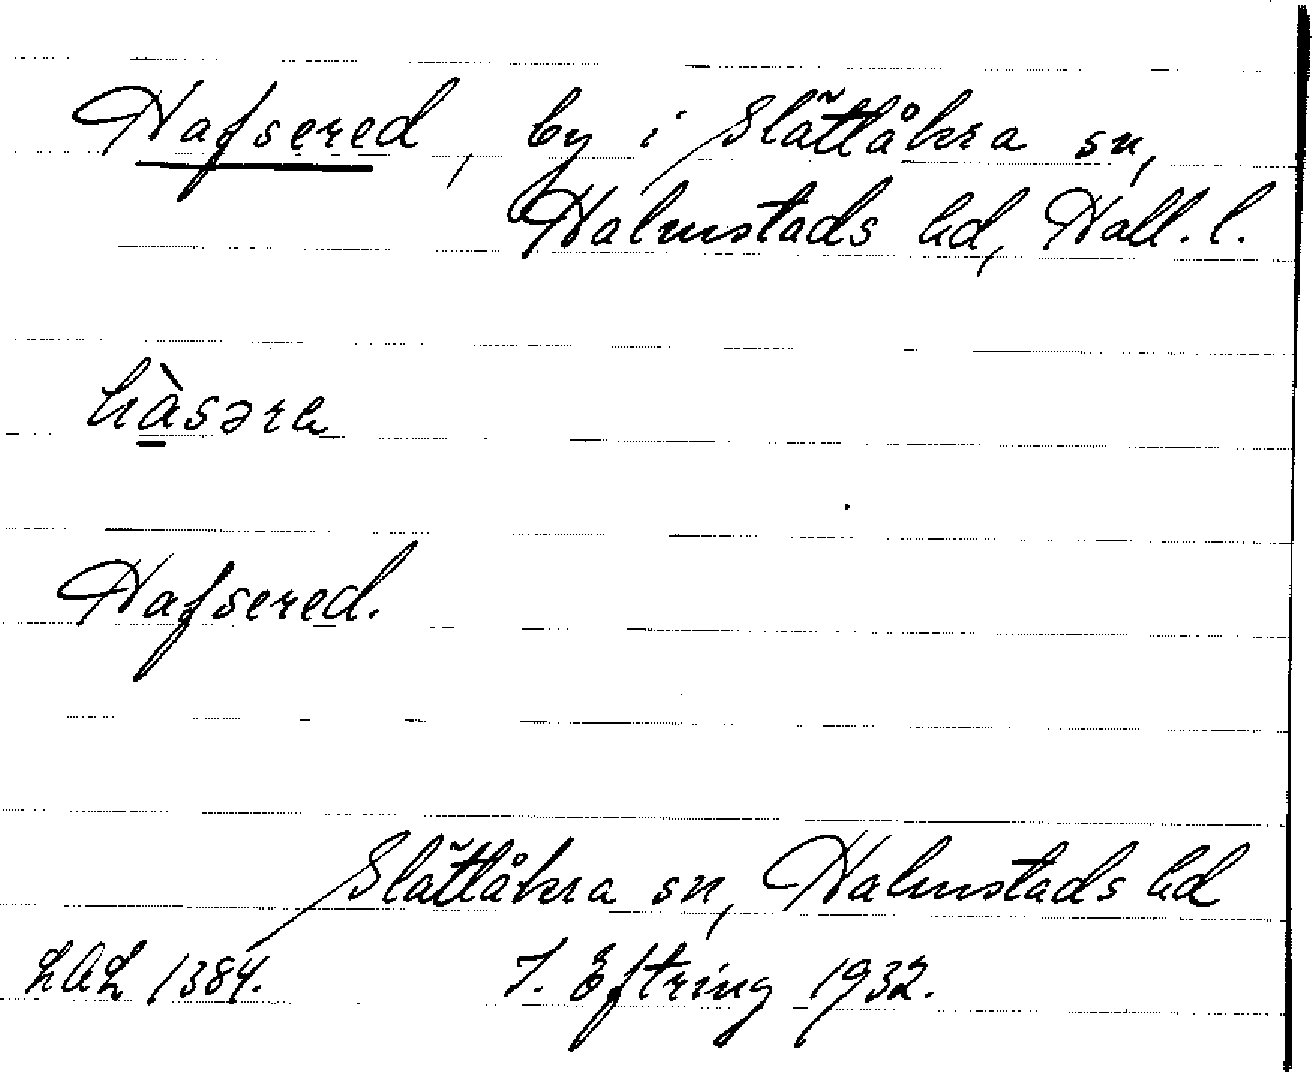 Hafsered, by i Slättåkra sn,
Halmstads hd, Hall. l.
hàsərä
Hafsered.
Slättåkra sn, Halmstads hd
LAL 1384. J. Eftring 1932.